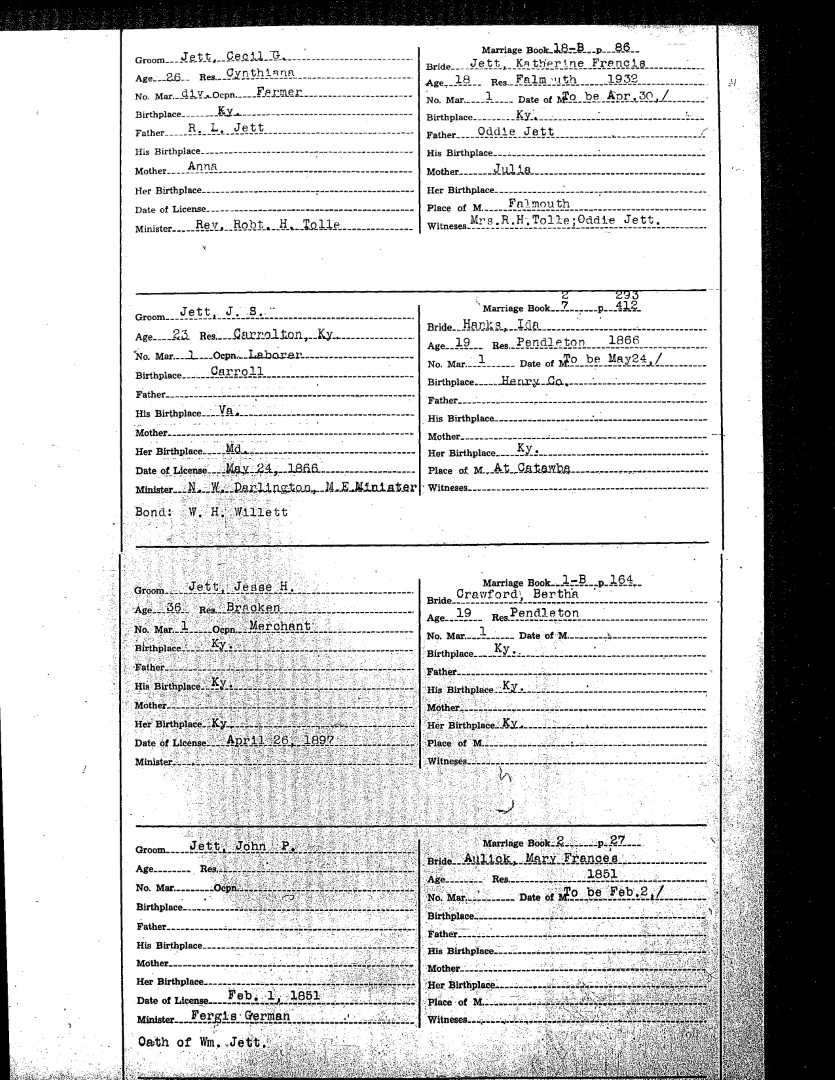 Groom Jett, Cecil G.
Age 26 Res. Cynthiana
No. Mar. div. Ocpn. Farmer
Birthplace Ky.
Father R. L. Jett
His Birthplace
Mother Anna
Her Birthplace
Date of License
Minister Rev. Robt. H. Tolle
Marriage Book 18-B p. 86
Bride Jett, Katherine Francis
Age 18 Res. Falmouth 1932
No. Mar. 1 Date of M. To be Apr.30,/
Birthplace Ky.
Father Oddie Jett
His Birthplace
Mother Julia
Her Birthplace
Place of M. Falmouth
Witneses Mrs.R.H.Tolle;Oddie Jett.
Groom Jett, J. S.
Age 23 Res. Carrolton, Ky.
No. Mar. 1 Ocpn. Laborer
Birthplace Carroll
Father
His Birthplace Va.
Mother
Her Birthplace Md.
Date of License May 24, 1866
Minister N. W. Darlington, M.E.Minister
Bond: W. H. Willett
2 293
Marriage Book 7 p. 412
Bride Hanks, Ida
Age 19 Res. Pendleton 1866
No. Mar. 1 Date of M. To be May24,/
Birthplace Henry Co.
Father
His Birthplace
Mother
Her Birthplace Ky.
Place of M. At Catawba
Witneses
Groom Jett, Jesse H.
Age 36 Res. Bracken
No. Mar. 1 Ocpn. Merchant
Birthplace Ky.
Father
His Birthplace Ky.
Mother
Her Birthplace Ky
Date of License April 26, 1897
Minister
Marriage Book 1-B p. 164
Bride Crawford, Bertha
Age 19 Res. Pendleton
No. Mar. 1 Date of M.
Birthplace Ky.
Father
His Birthplace Ky.
Mother
Her Birthplace Ky.
Place of M.
Witneses
Groom Jett, John P.
Age Res.
No. Mar. Ocpn.
Birthplace
Father
His Birthplace
Mother
Her Birthplace
Date of License Feb. 1, 1851
Minister Fergis German
Oath of Wm. Jett.
Marriage Book 2 p. 27
Bride Aulick, Mary Frances
Age Res. 1851
No. Mar. Date of M. To be Feb.2,/
Birthplace
Father
His Birthplace
Mother
Her Birthplace
Place of M.
Witneses